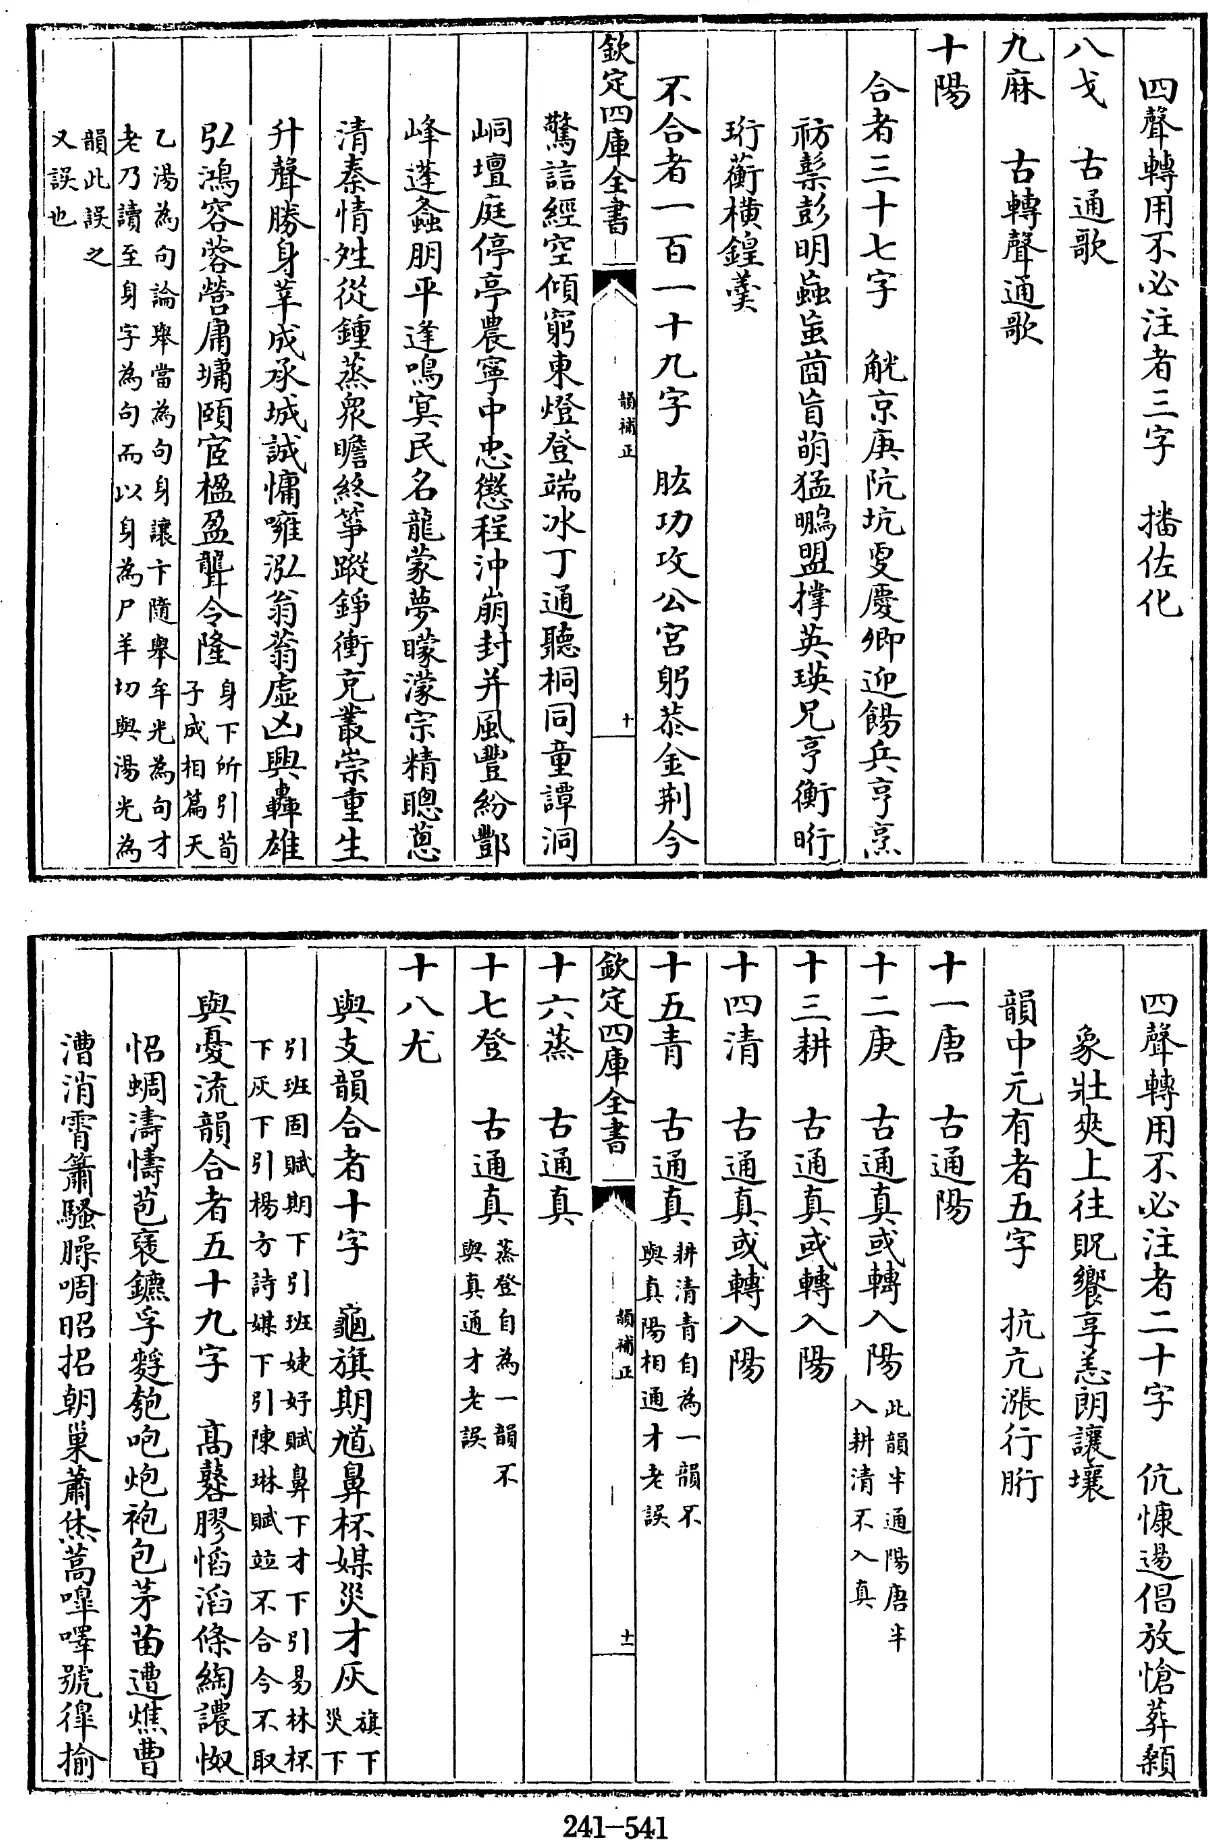 四聲轉用不必注者三字　播佐化
八戈　古通歌
九麻　古轉聲通歌
十陽
合者三十七字　觥京庚阬坑㪅慶卿迎餳兵亨烹
祊鬃彭明蝱䖟莔盲萌猛鵬盟撑英瑛兄亨衡珩
珩蘅橫鍠羹
不合者一百一十九字　肱功攻公宮躬恭金荆今
欽定四庫全書
韻補正
十
驚誩經空傾窮東燈登端冰丁通聽桐同童譚洞
峒壇庭停亭農寧中忠懲程沖崩封并風豐紛酆
峰蓬螽朋平逢鳴㝠民名龍蒙夢曚濛宗精聰蔥
清秦情姓從鍾蒸衆瞻終箏蹤錚衝克叢崇重生
升聲勝身莘成承城誠慵喠泓翁蓊虛凶興轟雄
弘鴻容蓉營庸墉頤宧楹盈聾令隆　身下所引荀
子成相篇天
乙湯為句論舉當為句身讓卞隨舉牟光為句才
老乃讀至身字為句而以身為尸羊切與湯光為
韻此誤之
又誤也
四聲轉用不必注者二十字　伉慷逿倡放愴葬顙
象壯夾上往貺饗享恙朗讓壤
韻中元有者五字　抗亢漲行胻
十一唐　古通陽
十二庚　古通真或轉入陽　此韻半通陽唐半
入耕清不入真
十三耕　古通真或轉入陽
十四清　古通真或轉入陽
十五青　古通真　耕清青自為一韻不
與真陽相通才老誤
欽定四庫全書
韻補正
十一
十六蒸　古通真
十七登　古通真　蒸登自為一韻不
與真通才老誤
十八尤
與支韻合者十字　龜旗期馗鼻杯媒災才灰　旗下
災下
引班固賦期下引班婕妤賦鼻下才下引易林杯
下灰下引楊方詩媒下引陳琳賦竝不合今不取
與憂流韻合者五十九字　高鼛膠慆滔條綯譨怓
怊蜩濤幬苞裦鑣孚麰匏咆炮袍包茅苗遭燋曹
漕消霄簫騷臊啁昭招朝巢蕭烋蒿嘷嘷號徭揄
241-541